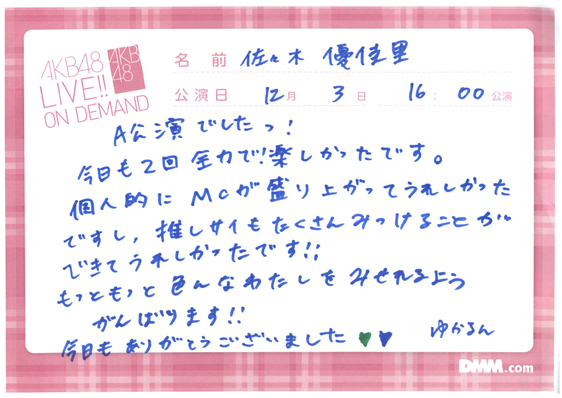 AKB48
LIVE!!
ON DEMAND
AKB
48
名前 佐々木 優佳里
公演日 12月 3日 16:00公演
A公演でしたっ!
今日も2回全力で!楽しかったです。
個人的にMCが盛り上がってうれしかった
ですし、推しサイもたくさんみつけることが
できてうれしかったです!!
もっともっと色んなわたしをみせれるよう
がんばります!!
今日もありがとうございました
ゆかるん
DMM.com